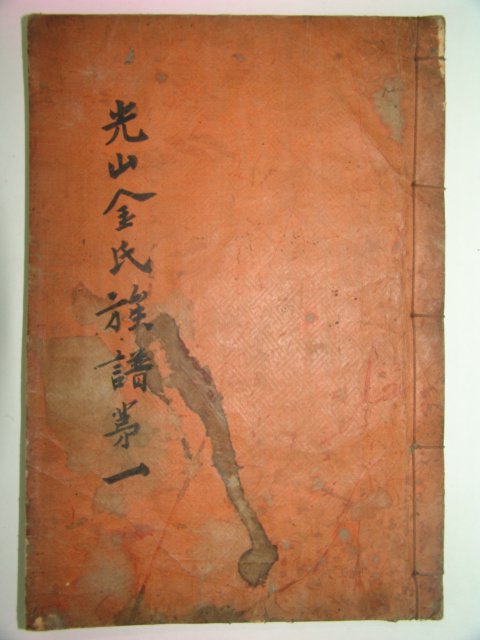 光山金氏族譜第一